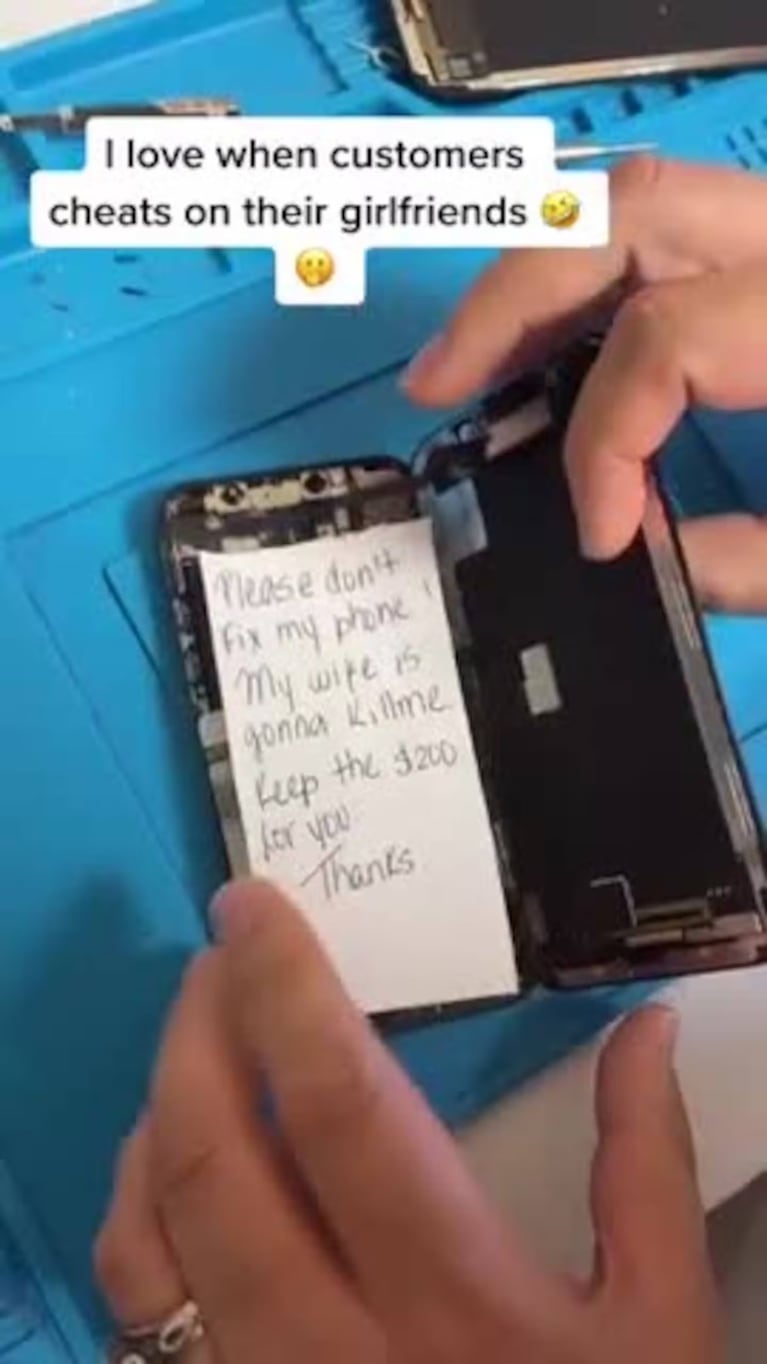 I love when customers
cheats on their girlfriends 🤣
🤭
Please don't
fix my phone !
My wife is
gonna Killme
Keep the $200
for you
Thanks